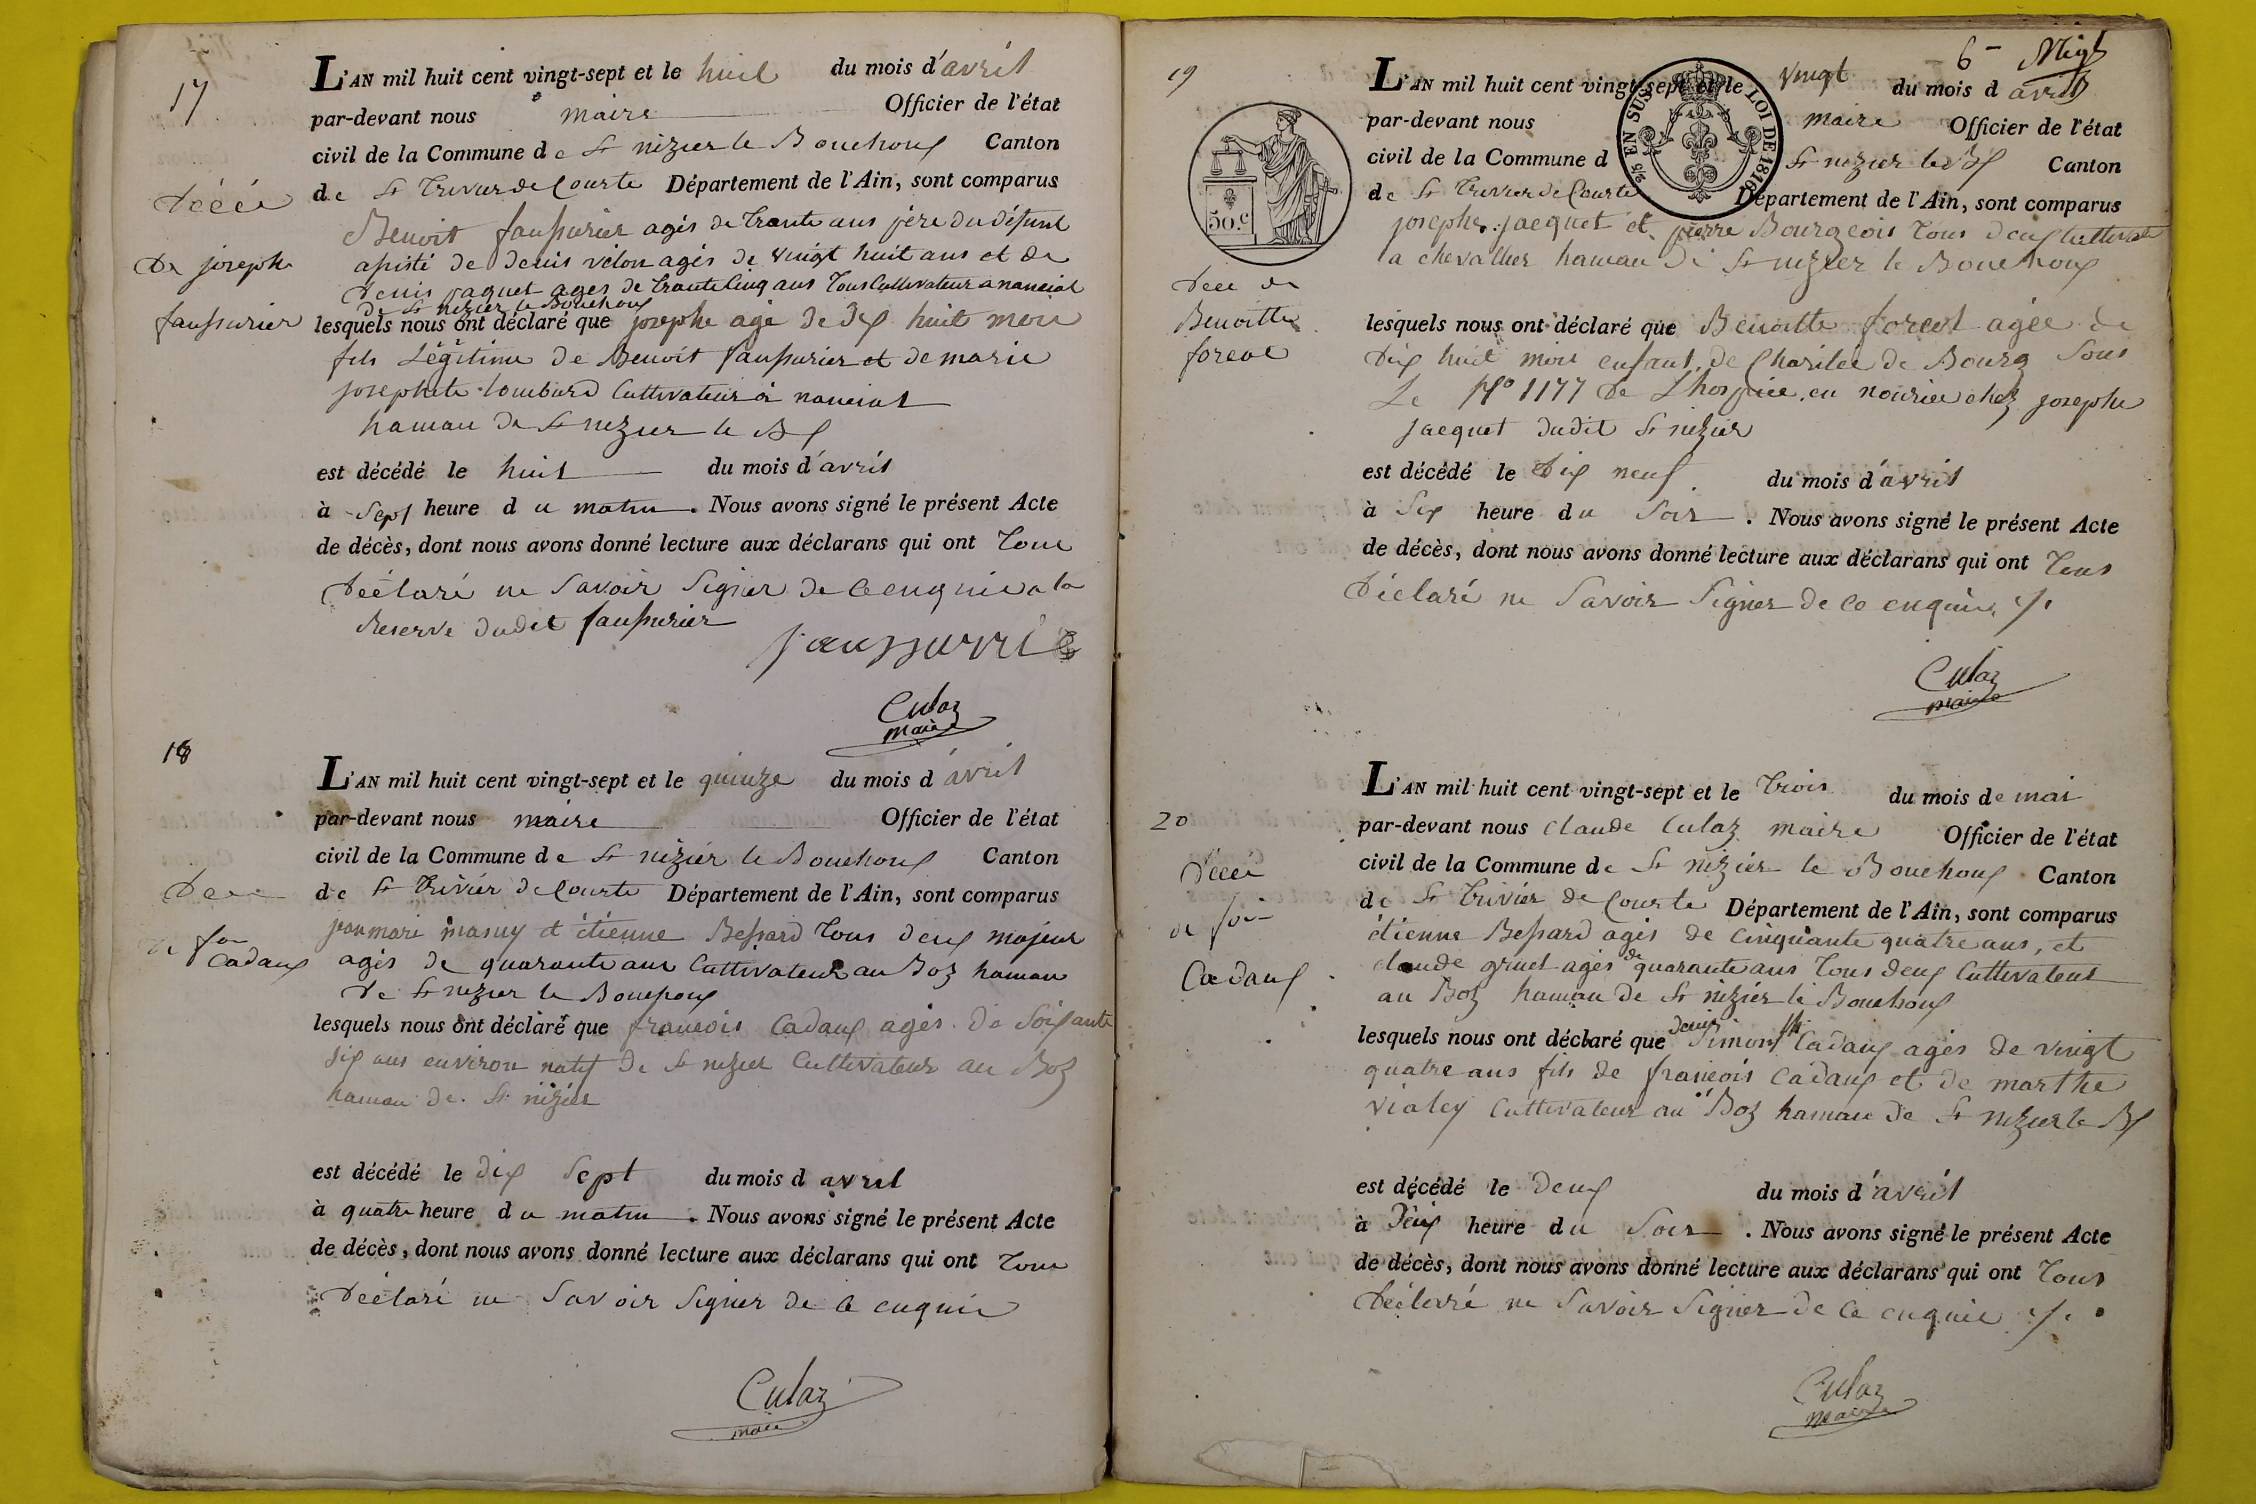 17
L'AN mil huit cent vingt-sept et le huit du mois d'avril
par-devant nous maire Officier de l'état
civil de la Commune de St nizier le Bouchoux Canton
de St Trivier de Courte Département de l'Ain, sont comparus
Décée
de josephe
faussurier
Benoit faussurier agés de trante ans père du défunt
asisté de denis velon agés de vingt huit ans et de
denis paquet ages de trante cinq ans Tous Cultivateur a nanciat
de St nizier le Bouchoux
lesquels nous ont déclaré que josephe agé de dix huit mois
fils Légitime de Benoit faussurier et de marie
josephete Loubard Cultivateur à nanciat
hamau de St nizier le Bx
est décédé le huit du mois d'avril
à sept heure du matin. Nous avons signé le présent Acte
de décès, dont nous avons donné lecture aux déclarans qui ont Tous
Déclaré ne Savoir Signer de ce enquie a la
Reserve dudit faussurier
faussurrie
Culaz
maire
18
L'AN mil huit cent vingt-sept et le quinze du mois d'avril
par-devant nous maire Officier de l'état
civil de la Commune de St nizier le Bouchoux Canton
de St Trivier de Courte Département de l'Ain, sont comparus
Décé
de fois
Cadaux
jean marie masuy et étienne Bessard Tous deux majeur
agés de quarante ans Cultivateur au Boz hamau
de St nizier le Bouchoux
lesquels nous ont déclaré que françois Cadaux agés de Soixante
six ans environ natif de St nizier Cultivateur au Boz
hamau de St nizier
est décédé le dix sept du mois d avril
à quatre heure du matin. Nous avons signé le présent Acte
de décès, dont nous avons donné lecture aux déclarans qui ont Tous
Déclaré ne Savoir Signer de ce enquie
Culaz
maire
6
19
L'AN mil huit cent vingt-sept et le vingt du mois d avril
par-devant nous maire Officier de l'état
civil de la Commune d St nizier le Bx Canton
de St Trivier de Courte Département de l'Ain, sont comparus
EN SUS LOI DE 1816
50.c
Décé de
Benoitte
foreat
josephe jacquet et pierre Bourgeois Tous deux Cultivate
a chevallier hamau de St nizier le Bouchoux
lesquels nous ont déclaré que Benoitte foreat agée de
dix huit mois enfant de Charitée de Bourg Sous
Le No 1177 de L'hospice, en nourice chez josephe
jacquet dudit St nizier
est décédé le dix neuf du mois d'avril
à Six heure du Soir. Nous avons signé le présent Acte
de décès, dont nous avons donné lecture aux déclarans qui ont Tous
Déclaré ne Savoir Signer de ce enquie
Culaz
maire
20
L'AN mil huit cent vingt-sept et le Trois du mois de mai
par-devant nous Claude Culaz maire Officier de l'état
civil de la Commune de St nizier le Bouchoux Canton
de St Trivier de Courte Département de l'Ain, sont comparus
Décée
Cadaux
étienne Bessard agés de cinquante quatre ans, et
claude gruet agés de quarante ans Tous deux Cultivateur
au Boz hamau de St nizier le Bouchoux
lesquels nous ont déclaré que denis Simon Cadaux agés de vingt
quatre ans fils de françois Cadaux et de marthe
vialey Cultivateur au Boz hamau de St nizier le Bx
est décédé le deux du mois d'avril
à heure du Soir. Nous avons signé le présent Acte
de décès, dont nous avons donné lecture aux déclarans qui ont Tous
Déclaré ne Savoir Signer de ce enquie
Culaz
maire